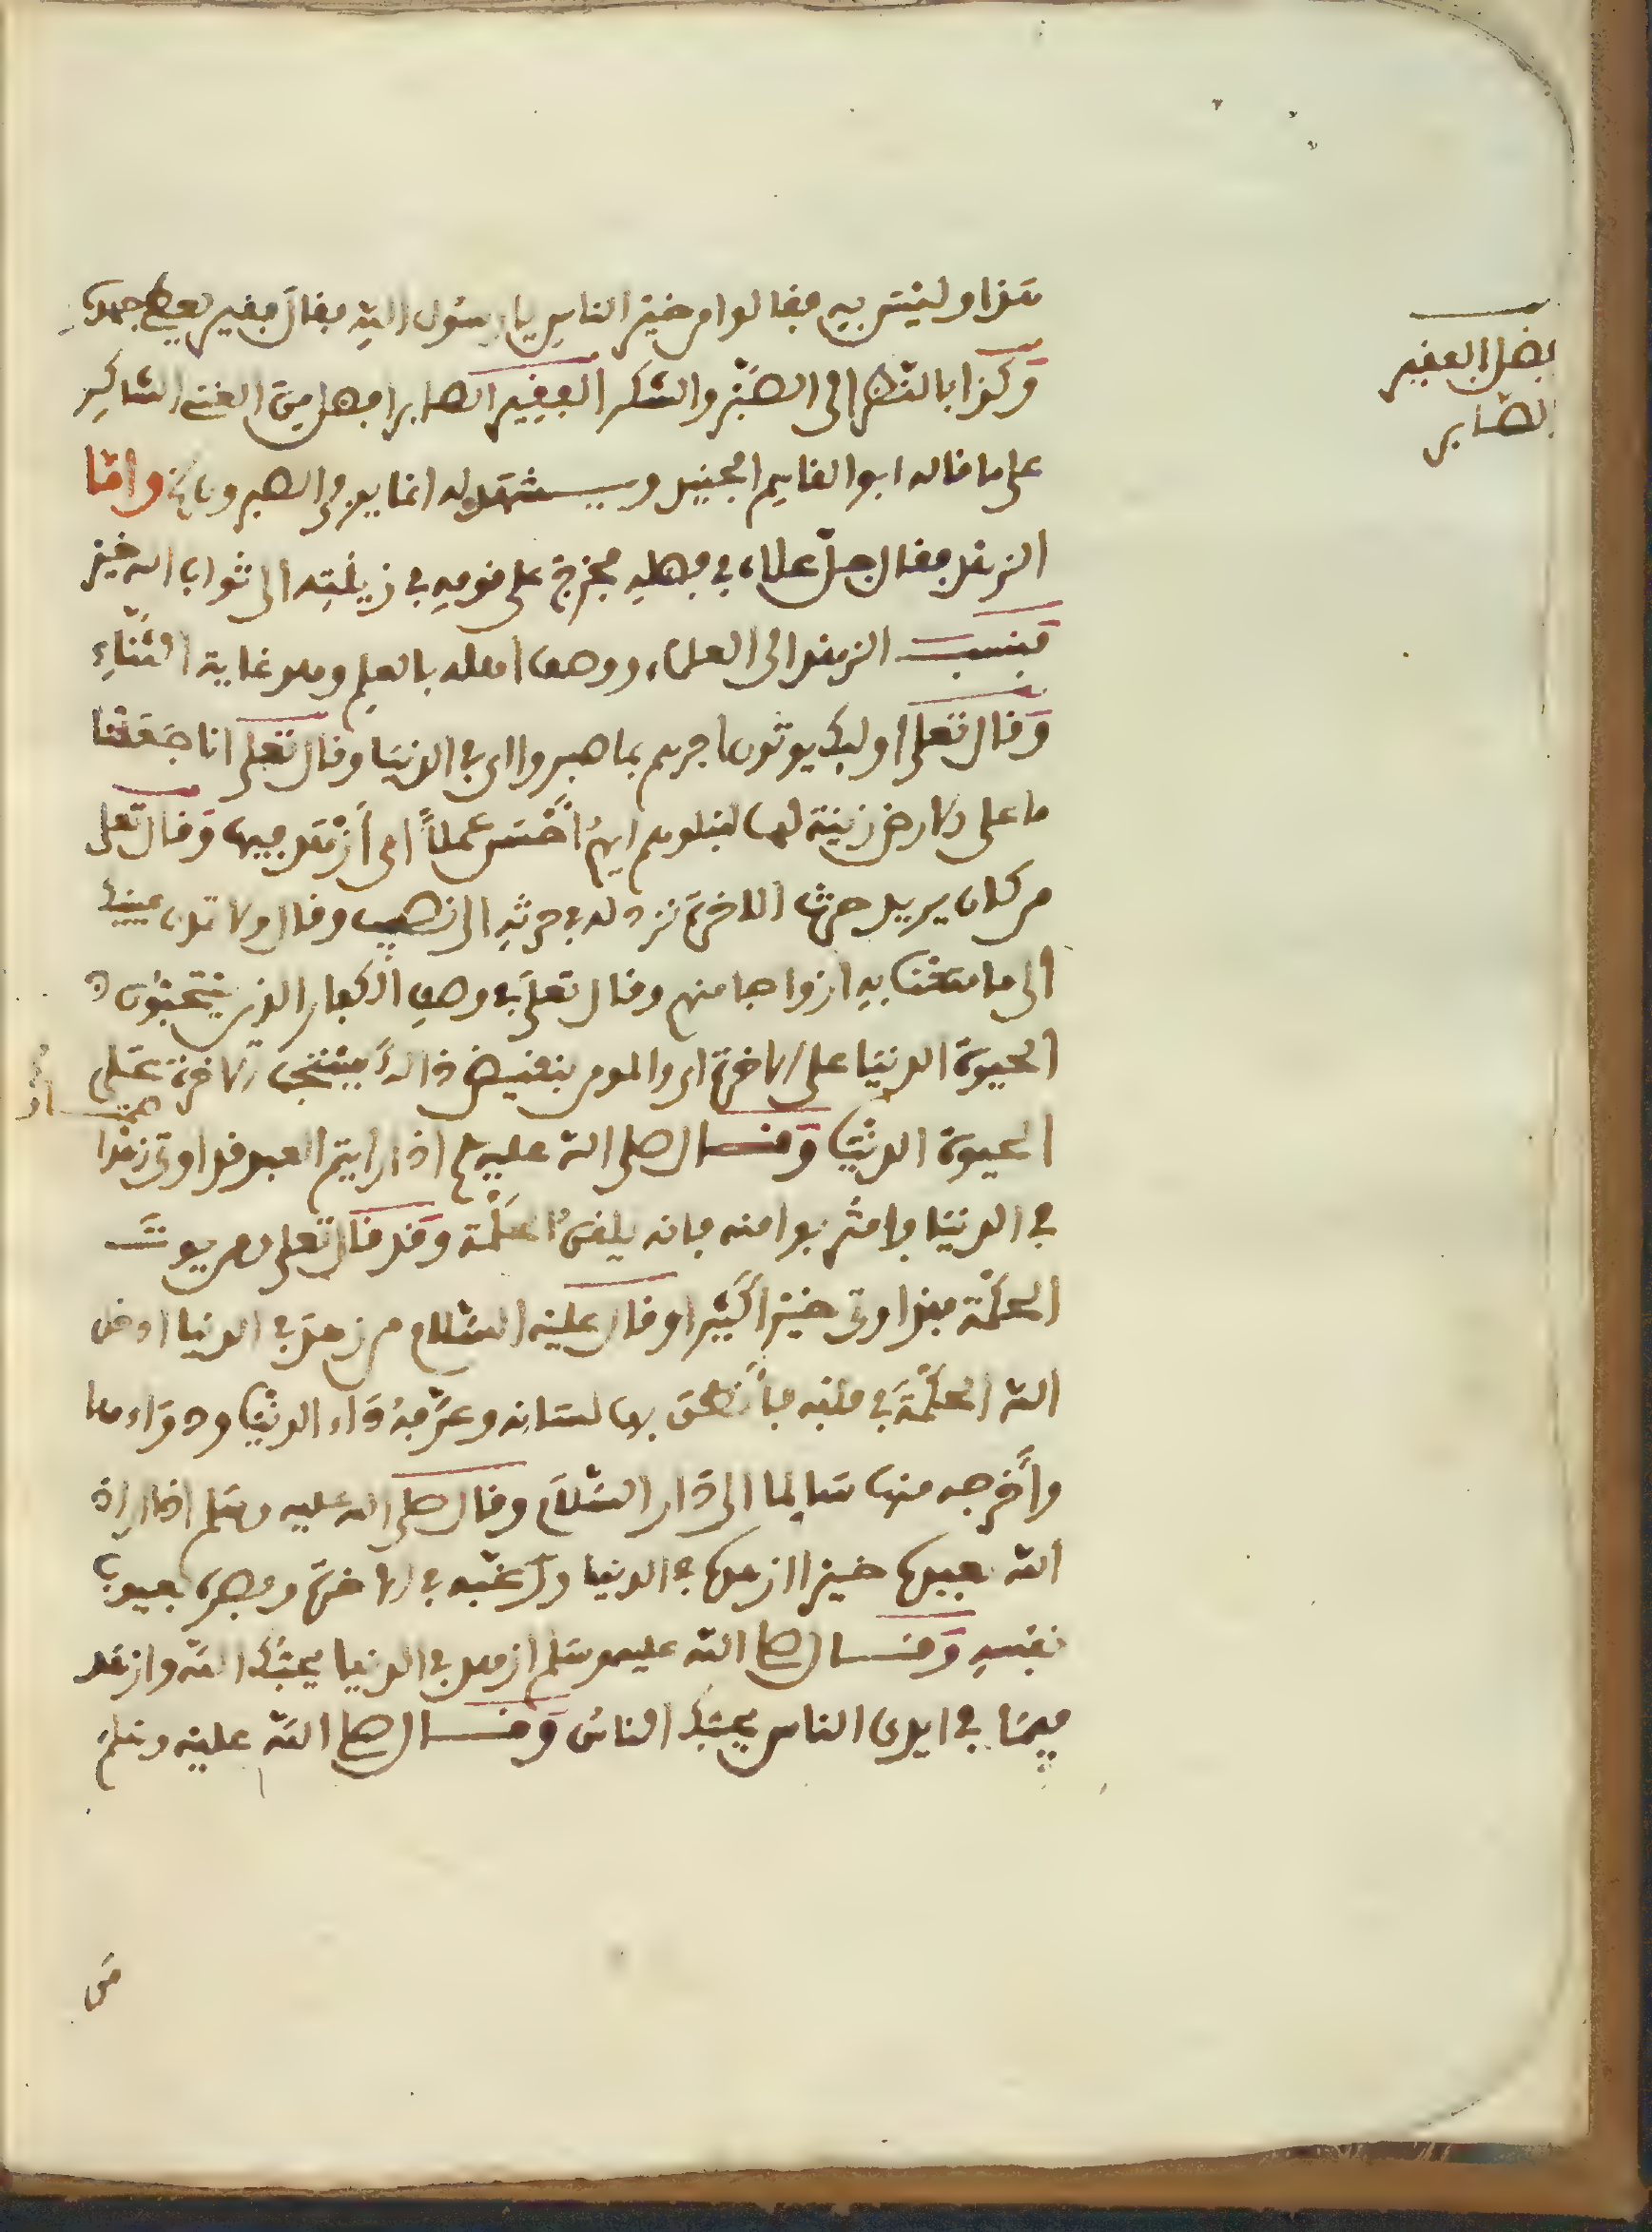 هذا وليس به فقالوا من خير الناس يا رسول الله فقال فقير يعطي جهده
وكذا بالنظر الى الصبر والشكر الفقير الصابر افضل من الغني الشاكر
على ما قاله ابو القاسم الجنيد ويشهد له انما يوفى الصبرون واما
الزهد فقال جل علاه في فضله فخرج على قومه في زينته الى ثواب الله خير
فنسب الزهد الى العلماء ووصف اهله بالعلم وهو غاية الثناء
وقال تعلى اوليك يوتون اجرهم بما صبروا اى في الدنيا وقال تعلى انا جعلنا
ما على الارض زينة لها لنبلوهم ايهم أحسن عملاً اى أزهد فيها وقال تعلى
من كان يريد حرث الاخرة نزد له في حرثه الى نصيب وقال ولا تمدن عينيك
الى ما متعنا به ازواجا منهم وقال تعلى في وصف الكفار الذين يستحبون
الحيوة الدنيا على الاخرة اى والمومن بنقيض ذالك يستحب الاخرة على
الحيوة الدنيا وقال صلى الله عليه اذا رايتم العبد قد اوتى زهدا
في الدنيا فاقتربوا منه فانه يلقى الحكمة وقد قال تعلى ومن يوت
الحكمة فقد اوتى خيرا كثيرا وقال عليه السلام من زهد في الدنيا ادخل
الله الحكمة في قلبه فأنطق بها لسانه وعرّفه داء الدنيا ودواءها
وأخرجه منها سالما الى دار السلام وقال صلى الله عليه وسلم اذا اراد
الله بعبده خيرا ازهده في الدنيا ورغبه في الاخرة وبصره بعيوب
نفسه وقال صلى الله عليه وسلم ازهد في الدنيا يحبك الله وازهد
فيما في ايدى الناس يحبك الناس وقال صلى الله عليه وسلم
من
فضل الفقير
الصابر